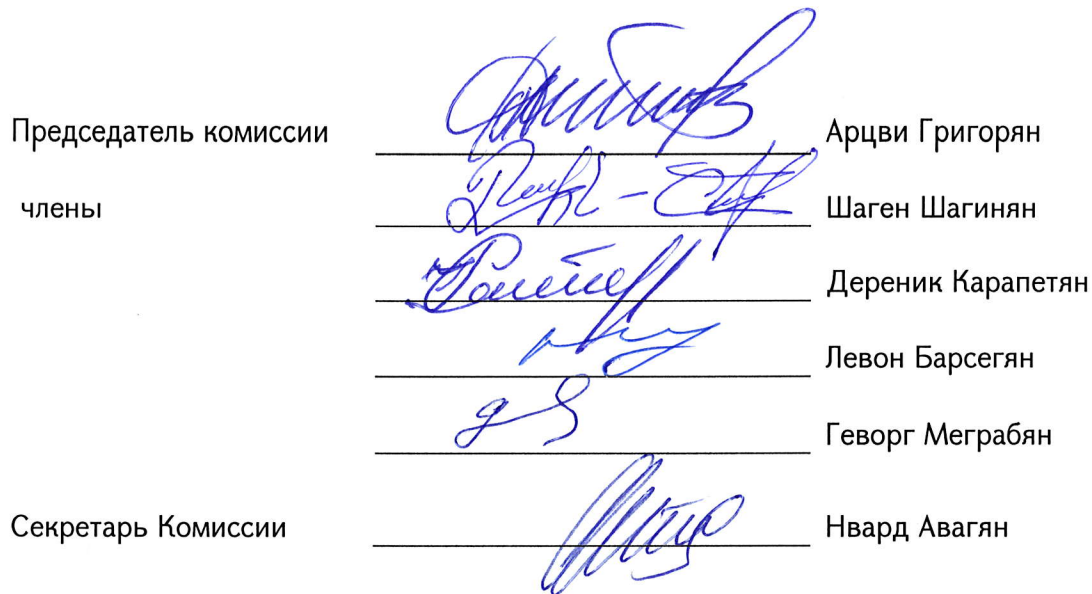 Председатель комиссии Арцви Григорян
члены Шаген Шагинян
Дереник Карапетян
Левон Барсегян
Геворг Меграбян
Секретарь Комиссии Нвард Авагян